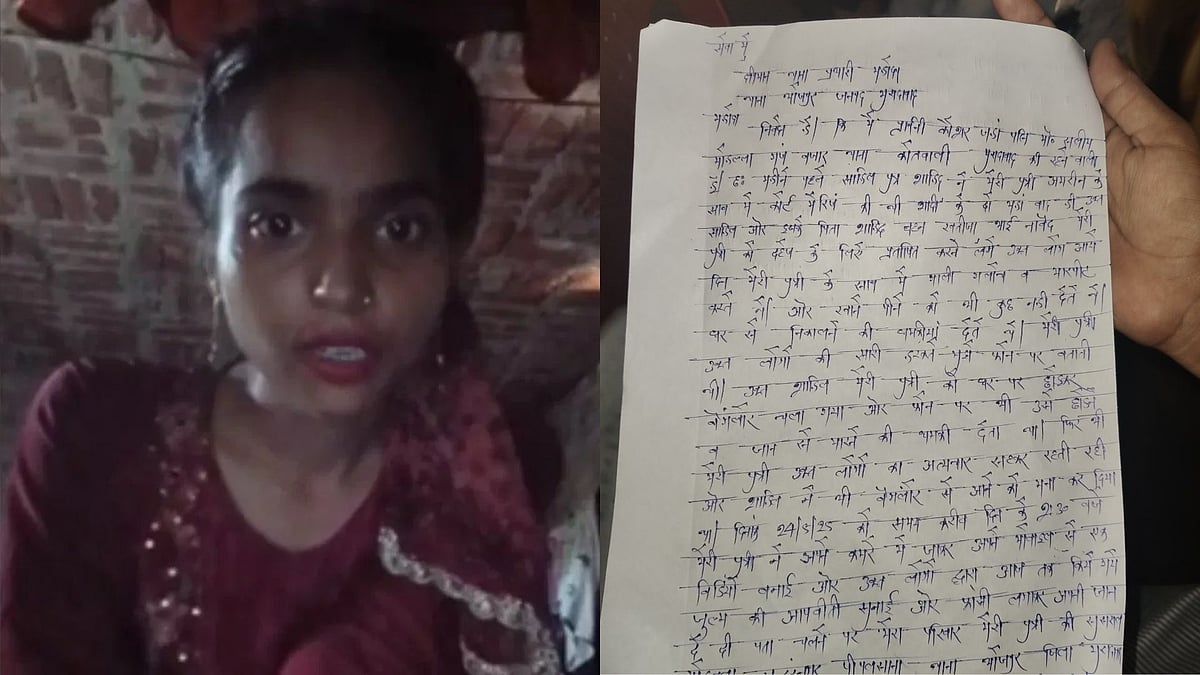 सेवा में
श्रीमान थाना प्रभारी महोदय
थाना भोजपुर जनपद मुरादाबाद
महोदय
निवेदन है। कि मैं प्रार्थनी कौशर जहां पत्नि मौ० सलीम
मौहल्ला थाना कोतवाली मुरादाबाद की रहने वाली
हूं। 6 महीने पहले साहिल पुत्र शाहिद ने मेरी पुत्री अमरीन के
साथ में कोर्ट मैरिज की थी शादी के दो माह बाद ही उक्त
साहिल और इसके पिता शाहिद बहन खतीजा भाई मेरी
पुत्री को दहेज के लिये प्रताडित करने लगे उक्त लोग आये
दिन मेरी पुत्री के साथ में गाली गलौच व मारपीट
करते थे। और खाने पीने को भी कुछ नही देते थे।
घर से निकालने की धमकीयां देते थे। मेरी पुत्री
उक्त लोगों की सारी हरकत मुझे फोन पर बताती
थी। उक्त साहिल मेरी पुत्री को घर पर छोडकर
बैंगलोर चला गया और फोन पर भी उसे छोडने
व जान से मारने की धमकी देता था। फिर भी
मेरी पुत्री उक्त लोगों का अत्याचार सहकर रहती रही
और साहिल ने भी बैंगलोर से आने को मना कर दिया
था। दिनांक 24/5/25 को समय करीब दिन के 2:30 बजे
मेरी पुत्री ने अपने कमरे में जाकर अपने मोबाइल से एक
विडियो बनाई और उक्त लोगों द्वारा आज तक किये गये
जुल्म की आपबीती सुनाई और फांसी लगाकर अपनी जान
दे दी पता चलने पर मेरा परिवार मेरी पुत्री की सुसराल
पीपलसाना थाना भोजपुर जिला मुरादाबाद